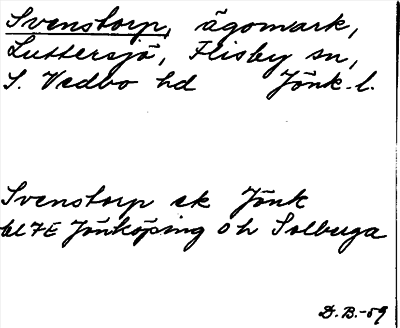 Svenstorp, ägomark,
Luttersjö, Flisby sn,
S. Vedbo hd Jönk. l.
Svenstorp ek Jönk
bl 7E Jönköping ch Solberga
D.B.-59